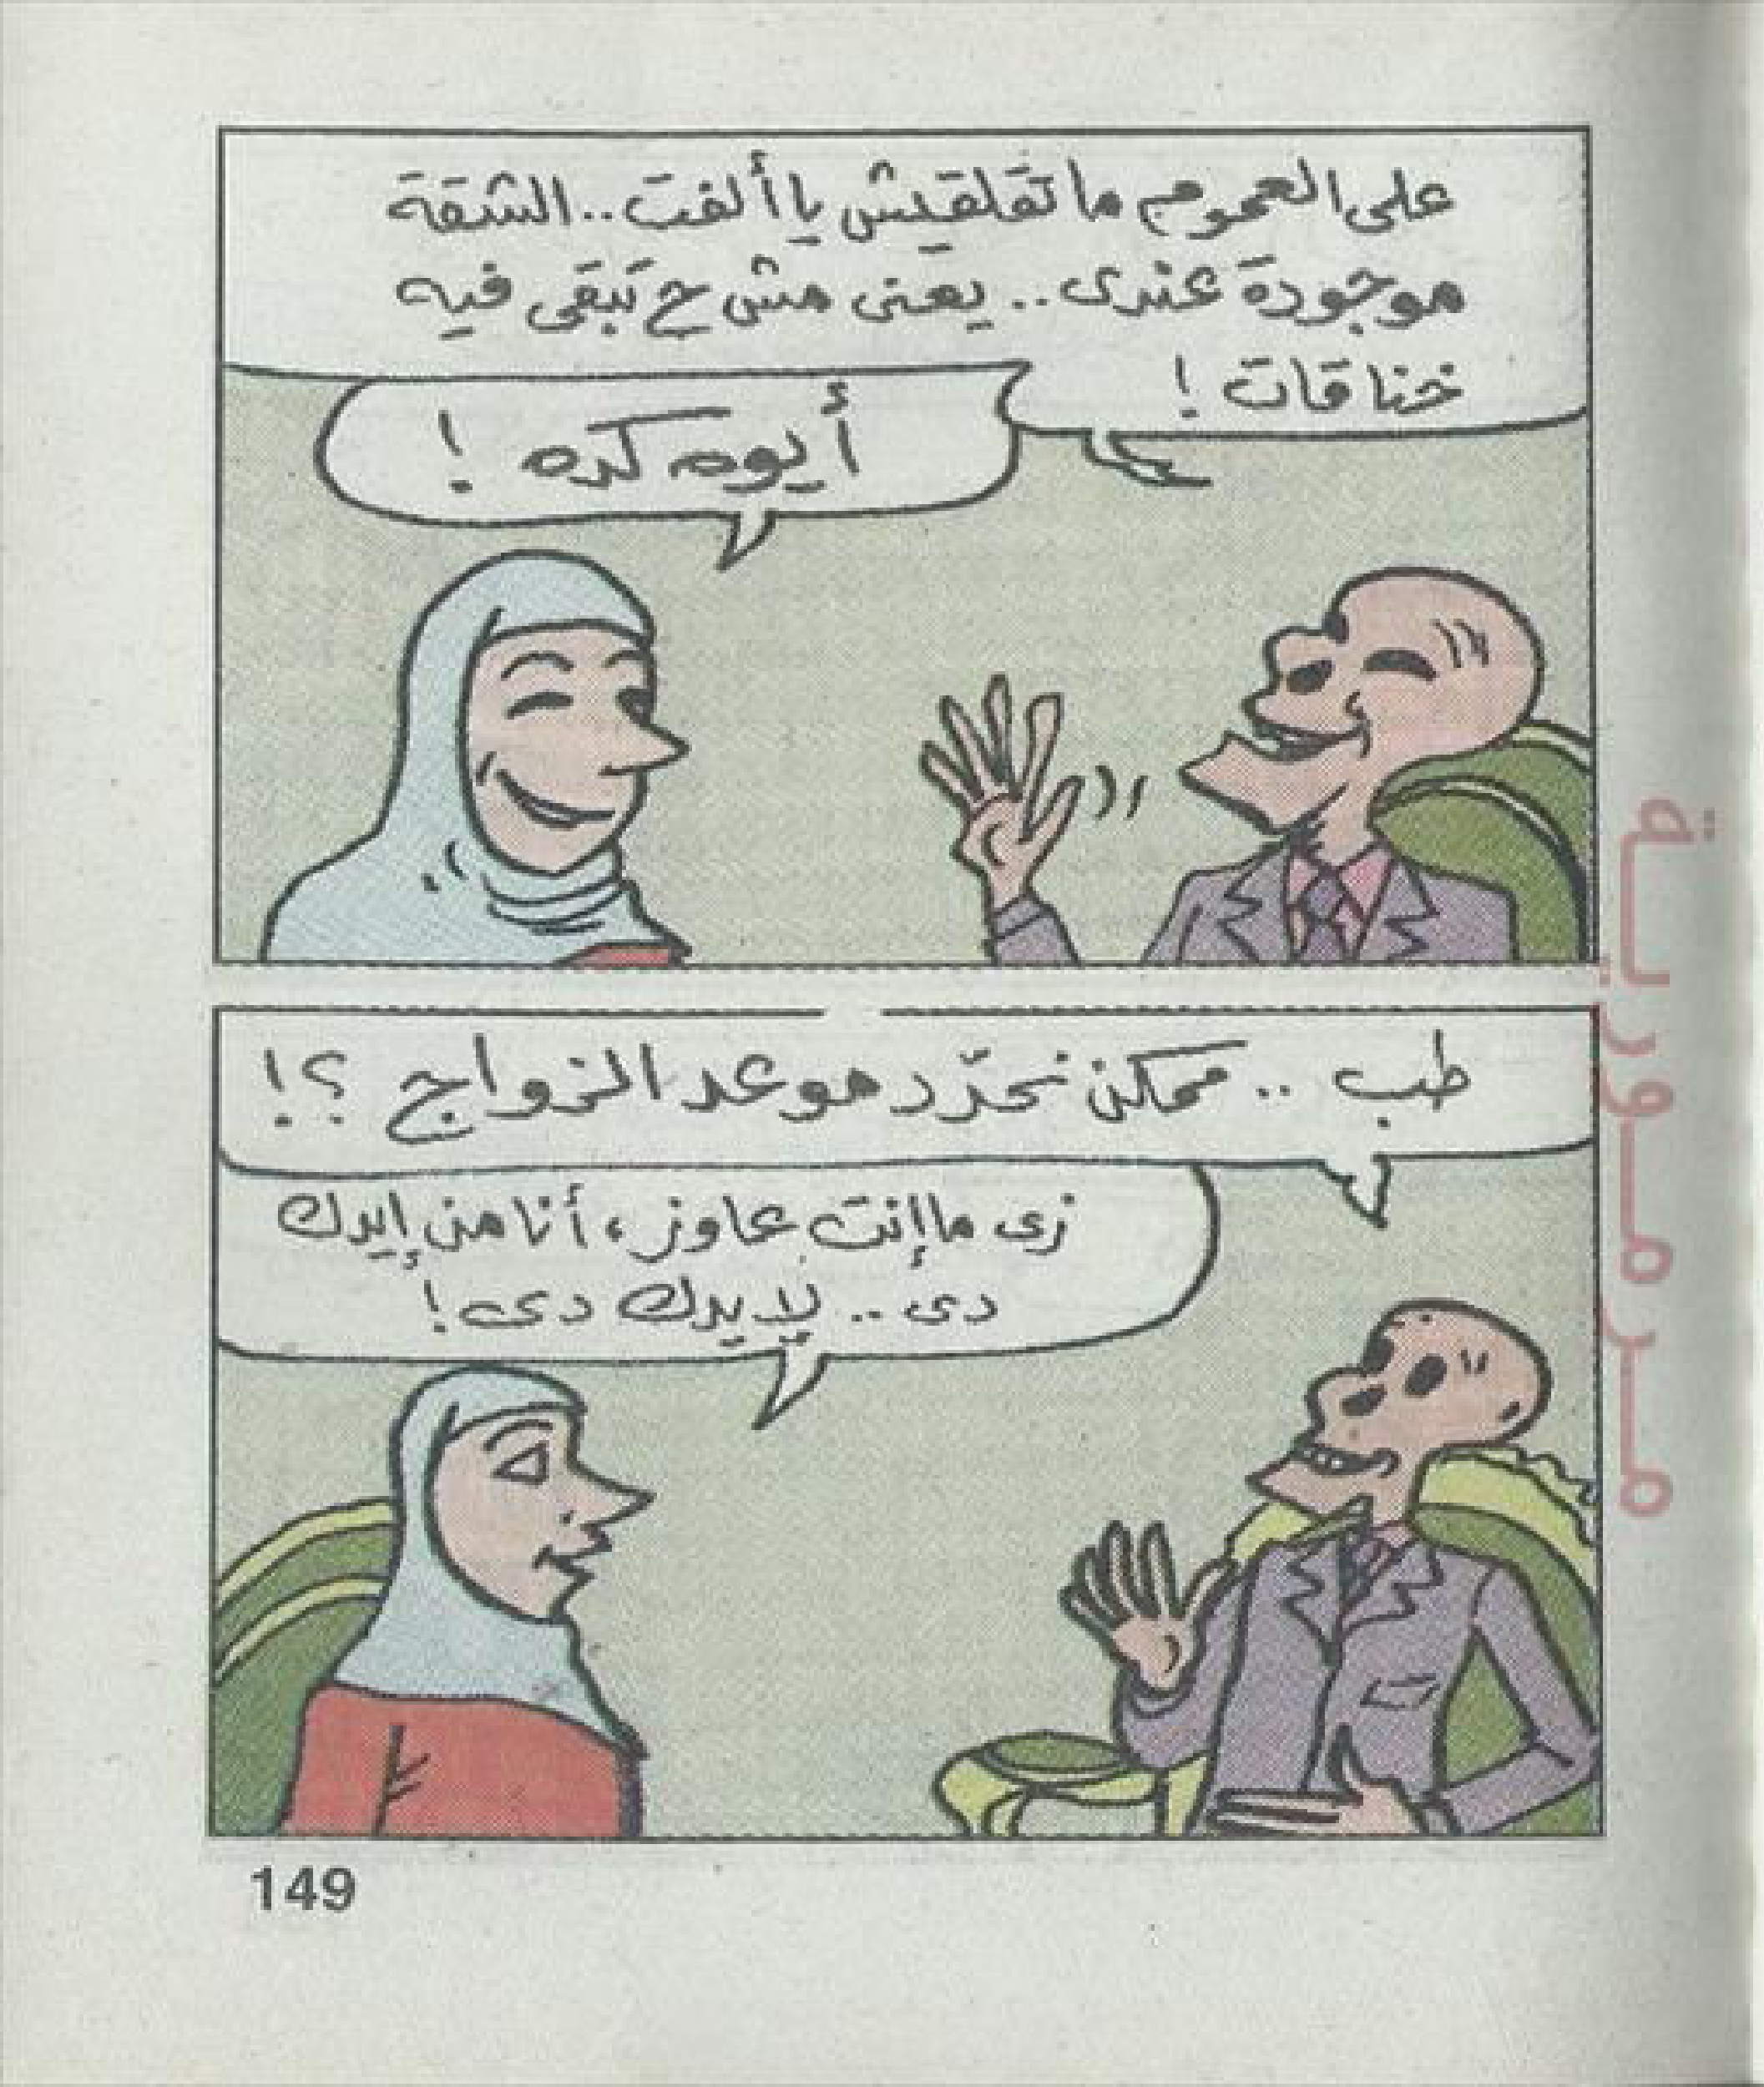 على العموم ما تقلقيش يا ألفت.. الشقة
موجودة عندى.. يعنى مش ح تبقى فيه
خناقات!
أيوه كده!
طب.. ممكن نحدّد موعد الزواج ؟!
زى ما إنت عاوز، أنا من إيدك
دى.. لإيدك دى!
149
مرمورية